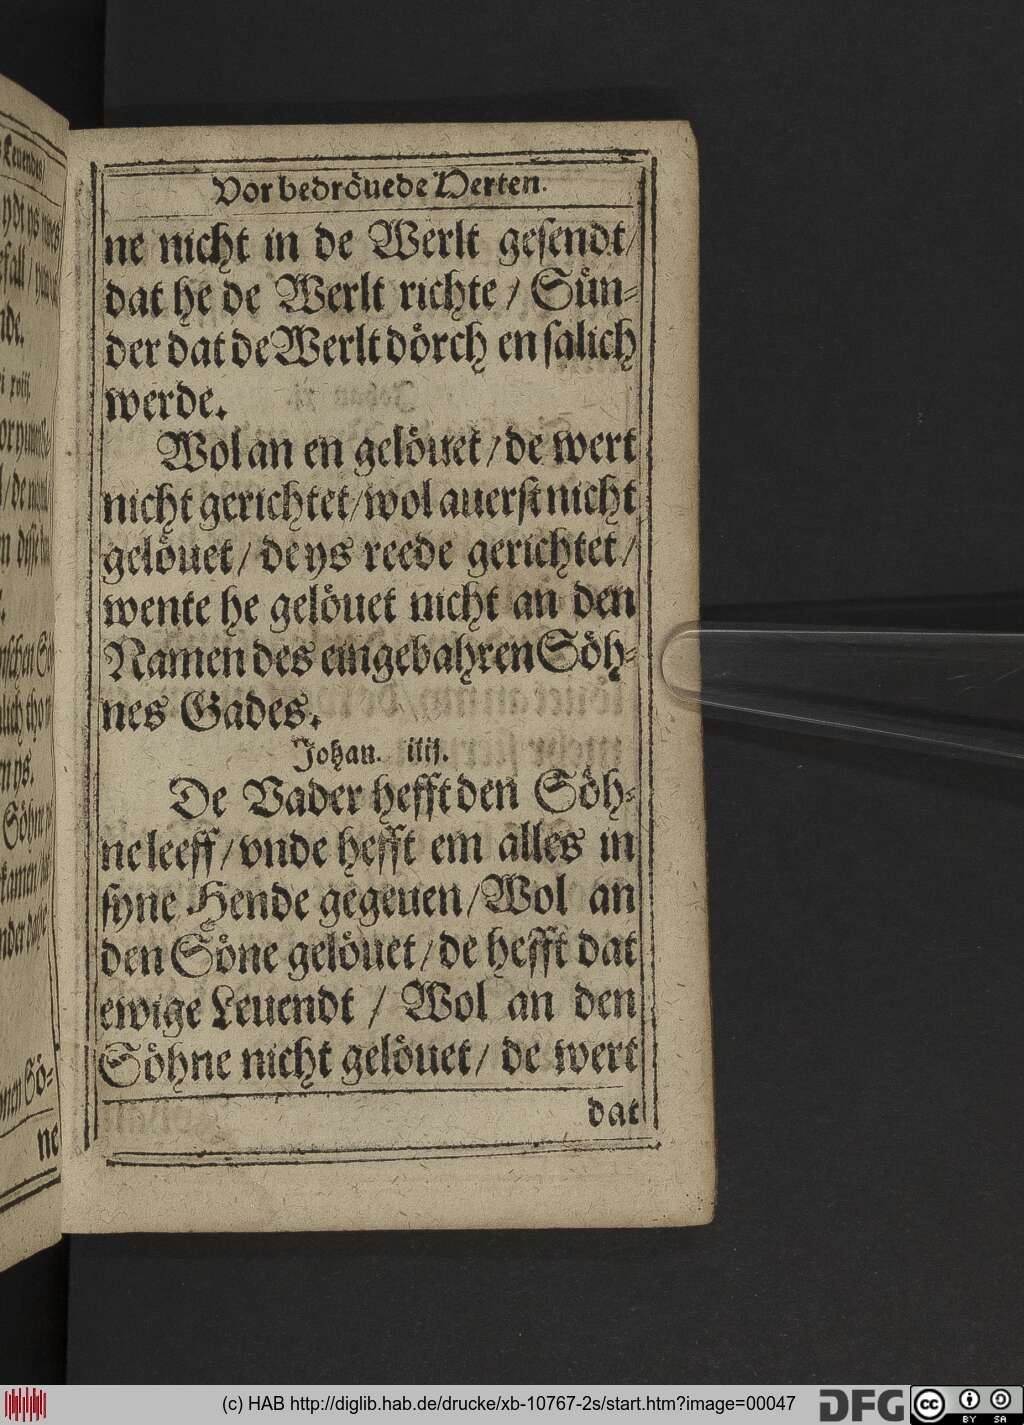 Vor bedröuede Herten.
ne nicht in de Werlt gesendt/
dat he de Werlt richte / Sün-
der dat de Werlt dörch en salich
werde.
Wol an en gelöuet / de wert
nicht gerichtet / wol auerst nicht
gelöuet / de ys reede gerichtet /
wente he gelöuet nicht an den
Namen des eingebahren Söh-
nes Gades.
Johan. iiij.
De Vader hefft den Söh-
ne leeff / vnde hefft em alles in
syne Hende gegeuen / Wol an
den Söne gelöuet / de hefft dat
ewige Leuendt / Wol an den
Söhne nicht gelöuet / de wert
dat
ne
(c) HAB http://diglib.hab.de/drucke/xb-10767-2s/start.htm?image=00047
DFG
cc
BY SA